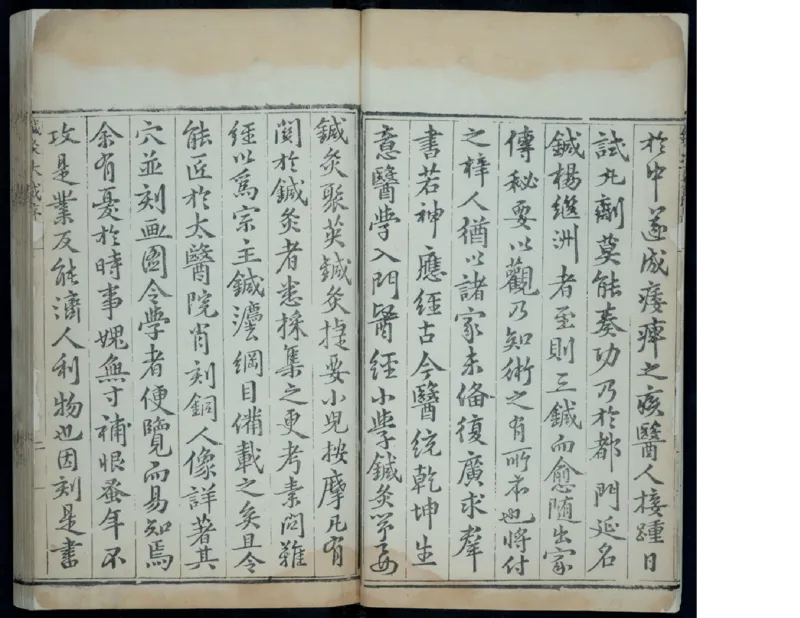 於中遂成痿痺之疾醫人接踵日
試丸劑莫能奏功乃於都門延名
鍼楊繼洲者至則三鍼而愈隨出家
傳秘要以觀乃知術之有所本也將付
之梓人猶以諸家未備復廣求羣
書若神應經古今醫統乾坤生
意醫學入門醫經小學鍼灸節要
鍼灸聚英鍼灸捷要小兒按摩凡有
關於鍼灸者悉採集之更考素問難
經以爲宗主鍼灋綱目備載之矣且令
能匠於太醫院肖刻銅人像詳著其
穴並刻画圖令學者便覽而易知焉
余有憂於時事媿無寸補恨蚤年不
攻是業反能濟人利物也因刻是書
鍼灸大成序
二